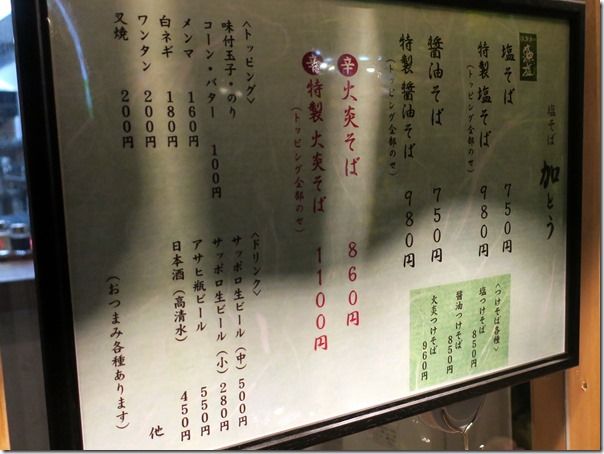 塩そば 加とう
塩そば 750円
特製塩そば 980円
(トッピング全部のせ)
醤油そば 750円
特製醤油そば 980円
(トッピング全部のせ)
〈つけそば各種〉
塩つけそば 850円
醤油つけそば 850円
火炎つけそば 960円
辛 火炎そば 860円
辛 特製火炎そば 1100円
(トッピング全部のせ)
〈トッピング〉
味付玉子・のり
コーン・バター 100円
メンマ 160円
白ネギ 180円
ワンタン 200円
叉焼 200円
〈ドリンク〉
サッポロ生ビール(中) 500円
サッポロ生ビール(小) 280円
アサヒ瓶ビール 550円
日本酒(高清水) 450円
他
(おつまみ各種あります)